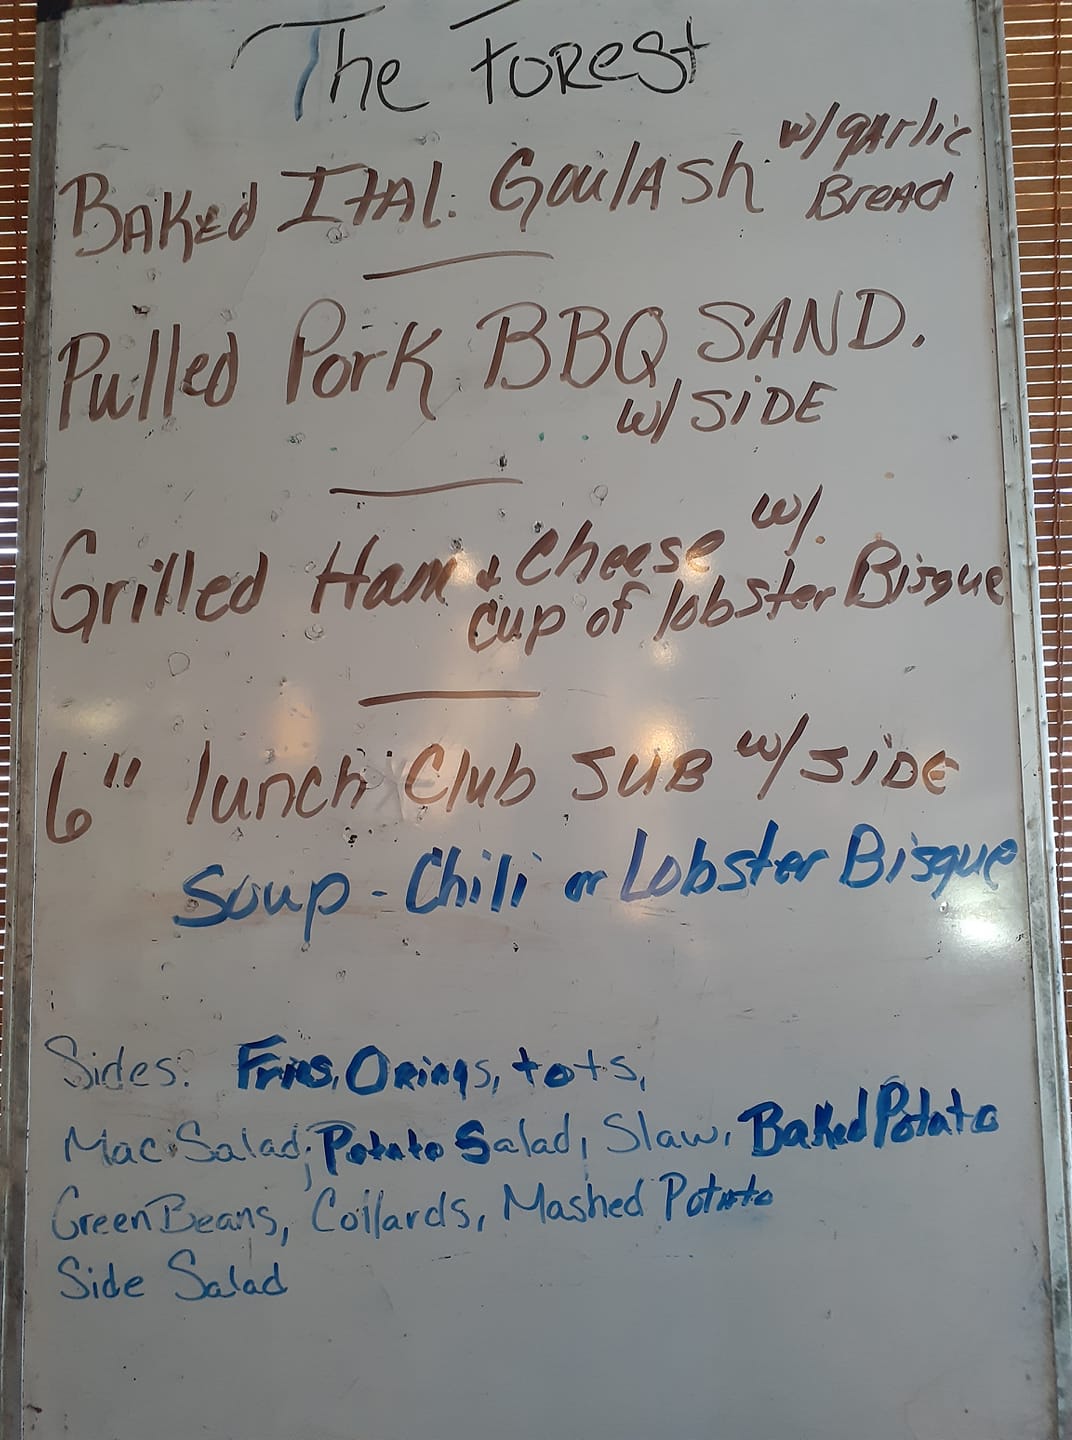 The Forest
Baked Ital. Goulash w/ garlic
Bread
Pulled Pork BBQ SAND.
w/ SIDE
Grilled Ham + Cheese w/.
cup of lobster Bisque
6" lunch Club SUB w/ SIDE
Soup - Chili or Lobster Bisque
Sides: Fries, O Rings, tots,
Mac Salad, Potato Salad, Slaw, Baked Potato
Green Beans, Collards, Mashed Potato
Side Salad